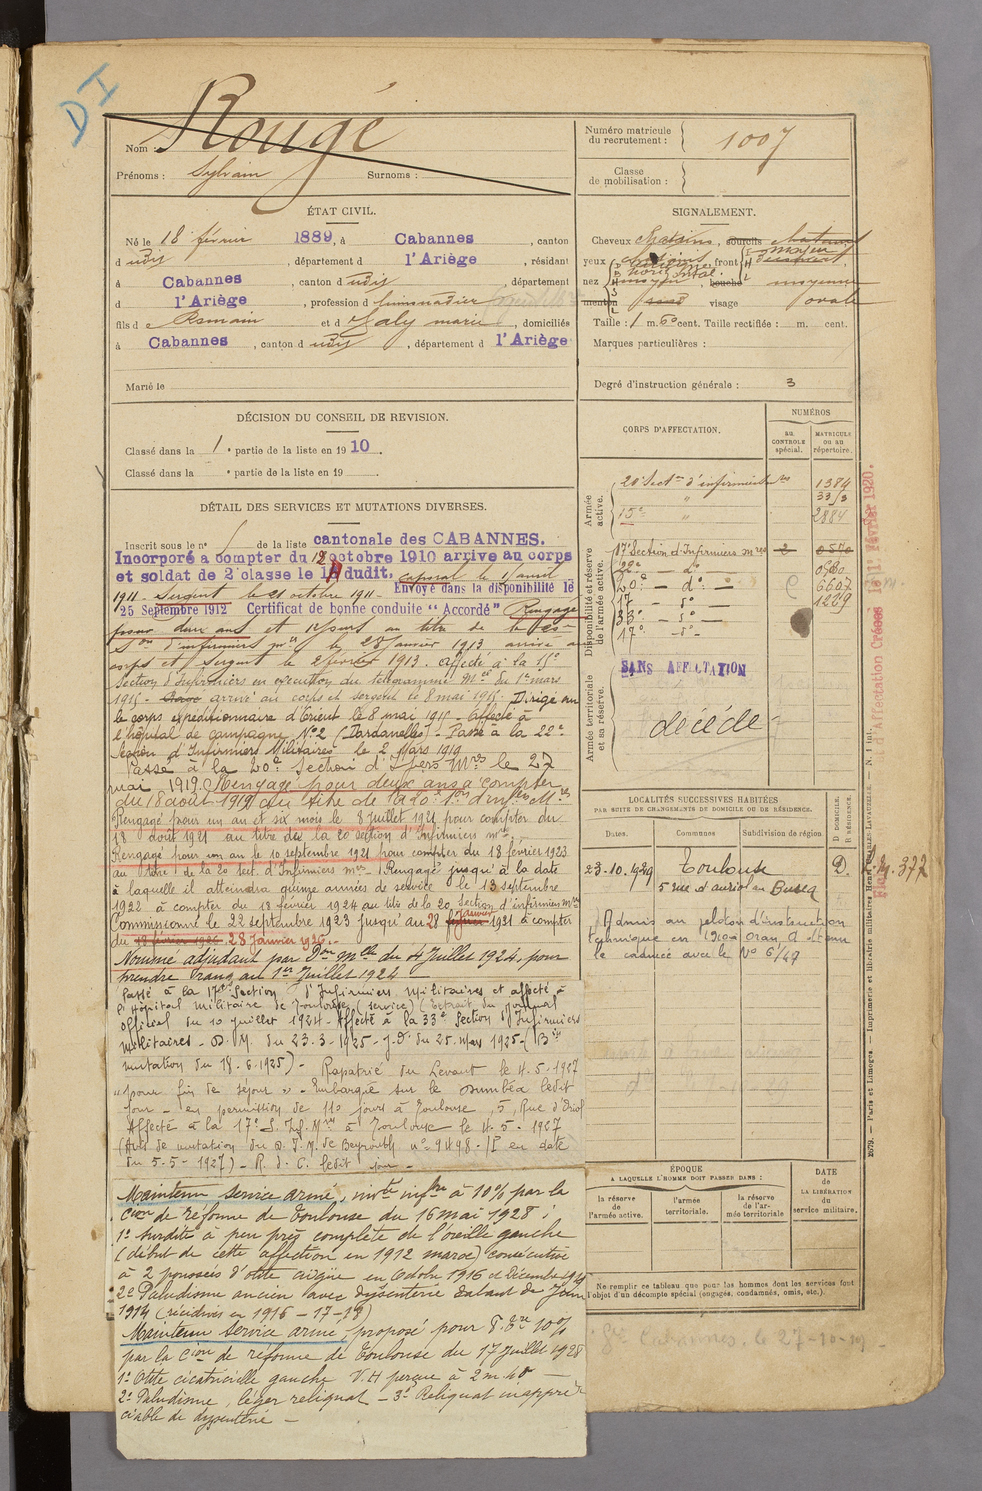 D I
Nom : Rougé
Prénoms : Sylvain Surnoms :
Numéro matricule
du recrutement : 1007
Classe
de mobilisation :
ÉTAT CIVIL.
Né le 18 février 1889, à Cabannes, canton
d udit, département d l'Ariège, résidant
à Cabannes, canton d udit, département
d l'Ariège, profession d
fils d e Romain et d marie, domiciliés
à Cabannes, canton d udit, département d l'Ariège
Marié le
SIGNALEMENT.
Cheveux, sourcils
yeux, front
nez moyen, bouche moyenne
menton rond visage ovale
Taille : 1 m. 60 cent. Taille rectifiée : m. cent.
Marques particulières :
Degré d'instruction générale : 3
DÉCISION DU CONSEIL DE REVISION.
Classé dans la 1e partie de la liste en 1910.
Classé dans la e partie de la liste en 19
DÉTAIL DES SERVICES ET MUTATIONS DIVERSES.
Inscrit sous le n° de la liste cantonale des CABANNES.
Incorporé a compter du 12 octobre 1910 arrive au corps
et soldat de 2e classe le dudit. caporal le avril
1911 - Sergent le 21 octobre 1911 - Envoyé dans la disponibilité le
25 Septembre 1912 Certificat de bonne conduite "Accordé" Rengagé
pour deux ans et au titre de la 20e
Son d'infirmiers mres le 28 janvier 1913 arrivé au
corps et Sergent le 2 février 1913. affecté à la 15e
Section d'infirmiers en exécution du télégramme Mel du 1er mars
1915 - arrivé au corps et sergent le 8 mai 1915. Dirigé sur
le corps expéditionnaire d'Orient le 8 mai 1915 - Affecté à
l'hôpital de campagne N°2 (Dardanelles) - Passé à la 22e
Section d'Infirmiers Militaires le 2 Mars 1919
Passé à la 20e Section d'Infers Mres le 27
mai 1919. Rengagé pour deux ans à compter
du 18 août 1919 au titre de la 20e Son d'infers Mres
Rengagé pour un an et six mois le 8 juillet 1921 pour compter du
18 août 1921 au titre de la 20 section d'Infirmiers mres
Rengagé pour un an le 10 septembre 1921 pour compter du 18 février 1923
au titre de la 20 sect. d'Infirmiers mres - Rengagé jusqu'à la date
à laquelle il atteindra quinze années de service le 13 septembre
1922 à compter du 18 février 1924 au titre de la 20 Section d'infirmiers mres
Commissionné le 22 septembre 1923 jusqu'au 28 janvier 1921 à compter
du 18 février 1926. 28 Janvier 1926.-
Nommé adjudant par Don Mlle du 4 Juillet 1924, pour
prendre rang au 1er Juillet 1924
Passé à la 17e Section d'Infirmiers Militaires et affecté à
l'Hôpital Militaire de Toulouse (service) (Extrait du Journal
officiel du 10 juillet 1924 - Affecté à la 33e Section d'Infirmiers
Militaires - D. M. du 23-3-1925 - J.O. du 25. Mars 1925 - (Bin
mutation du 18.6.1925) - Rapatrié du Levant le 4-5-1927
"pour fin de séjour" - Embarqué sur le Dumbéa ledit
jour - en permission de 110 jours à Toulouse, 5, Rue d'Oriol
Affecté à la 17e S. Inf. Mres à Toulouse le 4. 5 - 1927
(Avis de mutation du D. I. M. de Beyrouth n° 9498-/I en date
du 5-5-1927) - R. d. C. ledit jour -
Maintenu service armé, invte infre à 10% par la
Cion de réforme de Toulouse du 16 mai 1928 :
1° Surdité à peu près complète de l'oreille gauche
(début de cette affection en 1912 maroc) consécutive
à 2 poussées d'otite aigüe en Octobre 1916 et Décembre 1924
2° Paludisme ancien avec dysenterie datant de Juin
1914 (récidives en 1916 - 17 - 18)
Maintenu service armé, proposé pour P. tre 10%
par la Cion de réforme de Toulouse du 17 juillet 1928
1° Otite cicatricielle gauche V.H perçue à 2m.40 -
2° Paludisme, léger reliquat - 3° Reliquat inappré
ciable de dysenterie -
CORPS D'AFFECTATION.
NUMÉROS
au
CONTROLE
spécial.
MATRICULE
ou au
répertoire.
Armée
active.
20e Secton d'infirmiers mres 1384
" 33/3
15e " 2884
Disponibilité et réserve
de l'armée active.
17e Section d'Infirmiers mres
22e - do - 0980
20e - do - 6607
17 - do - 1229
33e - do -
17e - do -
Armée territoriale
et sa réserve.
SANS AFFECTATION
décédé -
LOCALITÉS SUCCESSIVES HABITÉES
PAR SUITE DE CHANGEMENTS DE DOMICILE OU DE RÉSIDENCE.
Dates. Communes Subdivision de région. D. DOMICILE. R. RÉSIDENCE.
23.10.1929 Toulouse D.
5 rue
Admis au peloton d'instruction
technique en 1910 à Oran a obtenu
le caducé avec le N° 6/47
ÉPOQUE
A LAQUELLE L'HOMME DOIT PASSER DANS :
la réserve
de l'armée active.
l'armée
territoriale.
la réserve
de l'armée territoriale
DATE
de
LA LIBÉRATION
du
service militaire.
Ne remplir ce tableau que pour les hommes dont les services font
l'objet d'un décompte spécial (engagés, condamnés, omis, etc.).
Cabannes, le 27-10-
d'Affectation Créées le 1er Février 1920.
377
2679. — Paris et Limoges. — Imprimerie et librairie militaires Henri CHARLES-LAVAUZELLE. — N. 1 int.